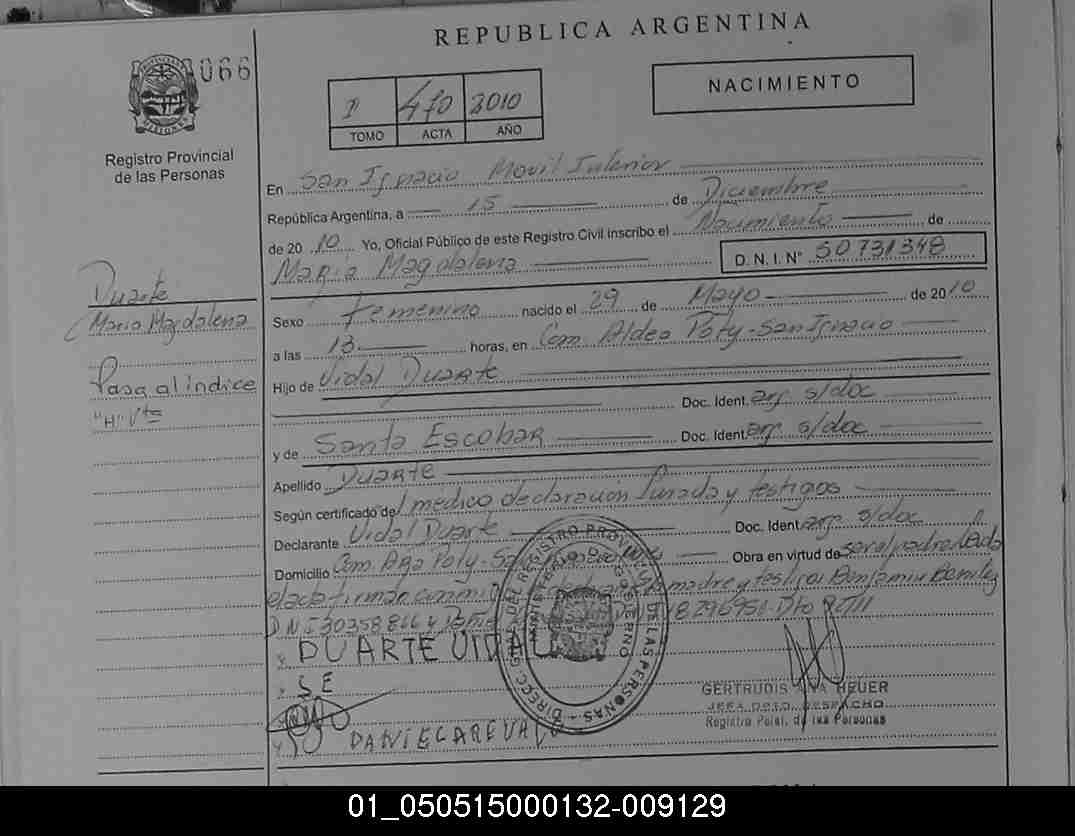 REPUBLICA ARGENTINA
066
PROVINCIA DE MISIONES
Registro Provincial
de las Personas
I 470 2010
TOMO ACTA AÑO
NACIMIENTO
En San Ignacio Movil Interior
República Argentina, a 15 de Diciembre
de 2010 Yo, Oficial Público de este Registro Civil inscribo el Nacimiento de
Maria Magdalena D.N.I.N° 50731348
Sexo femenino nacido el 29 de Mayo de 2010
a las 13 horas, en Com. Aldea Poty-San Ignacio
Hijo de Vidal Duarte
Doc. Ident. arg s/doc
y de Santa Escobar Doc. Ident. arg s/doc
Apellido Duarte
Según certificado de medico, declaración Jurada y testigos
Declarante Vidal Duarte Doc. Ident. arg s/doc
Domicilio Com. Poty- Obra en virtud de ser el padre
el acta firman conmigo madre y testigos Benjamin Benitez
DNI 30358866 y 18296951
DUARTE VIDAL
S.E
DANIEL AREVALO
GERTRUDIS ANA HEUER
JEFA DPTO. DESPACHO
Registro Pcial. de las Personas
Duarte
Maria Magdalena
Pasa al indice
"H" Vta
01_050515000132-009129